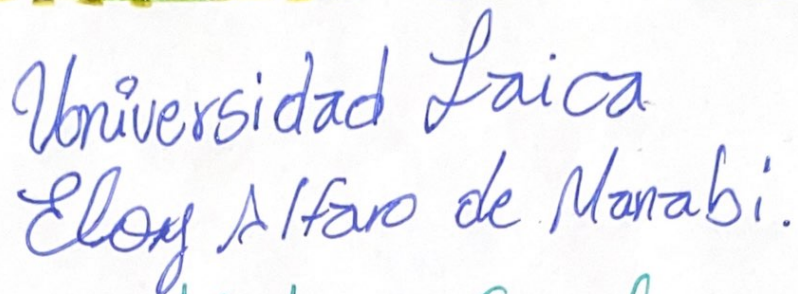 Universidad Laica
Eloy Alfaro de Manabi.